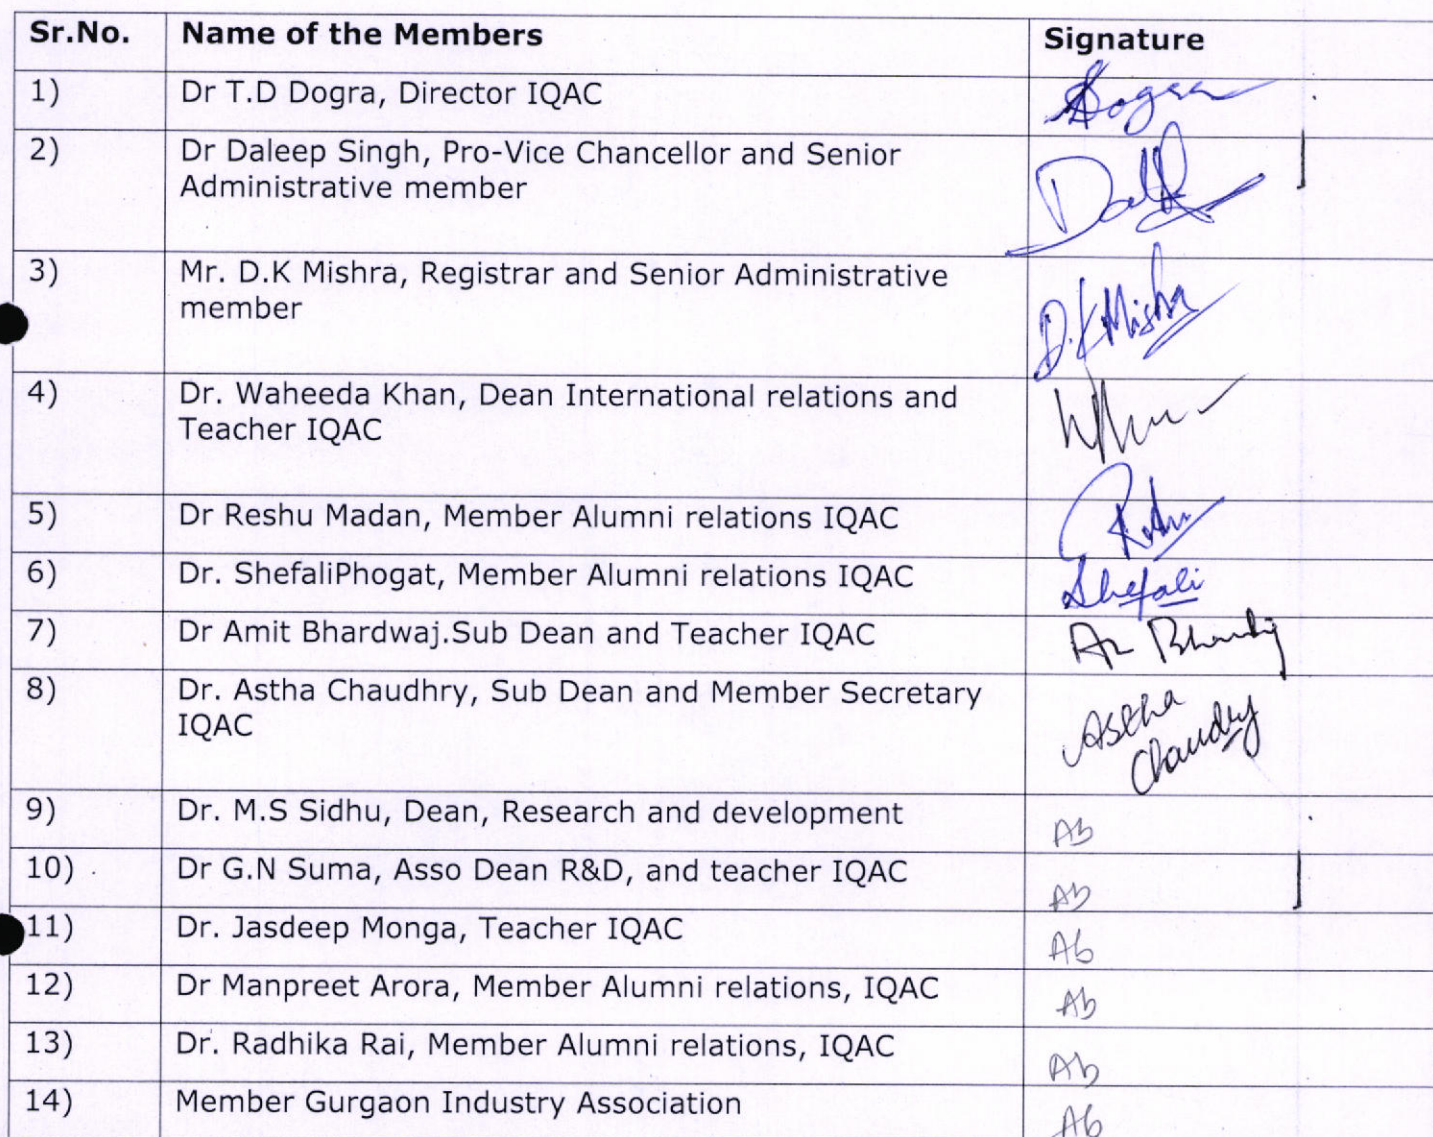 Sr.No. Name of the Members Signature
1) Dr T.D Dogra, Director IQAC Dogra
2) Dr Daleep Singh, Pro-Vice Chancellor and Senior
Administrative member
3) Mr. D.K Mishra, Registrar and Senior Administrative
member D.K Mishra
4) Dr. Waheeda Khan, Dean International relations and
Teacher IQAC
5) Dr Reshu Madan, Member Alumni relations IQAC
6) Dr. ShefaliPhogat, Member Alumni relations IQAC Shefali
7) Dr Amit Bhardwaj.Sub Dean and Teacher IQAC
8) Dr. Astha Chaudhry, Sub Dean and Member Secretary Astha
IQAC Chaudhry
9) Dr. M.S Sidhu, Dean, Research and development Ab
10) Dr G.N Suma, Asso Dean R&D, and teacher IQAC Ab
11) Dr. Jasdeep Monga, Teacher IQAC Ab
12) Dr Manpreet Arora, Member Alumni relations, IQAC Ab
13) Dr. Radhika Rai, Member Alumni relations, IQAC Ab
14) Member Gurgaon Industry Association Ab